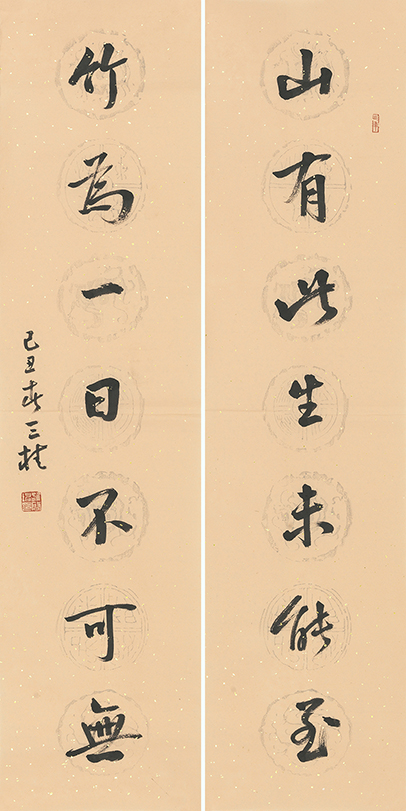 山有此生未能至
竹為一日不可無
己丑春三桂